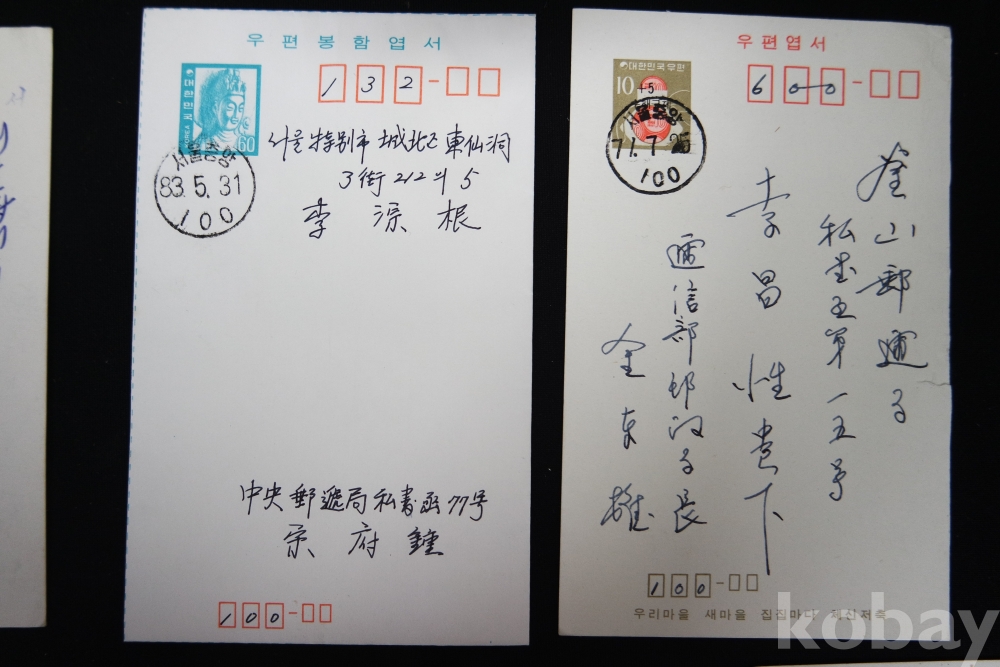 우편봉함엽서
대한민국
KOREA
60
132
서울中央
83.5.31
100
서울特別市 城北区 東仙洞
3街 212의 5
李 淙 根
中央郵遞局私書函77号
宗 府 鍾
100
우편엽서
대한민국우편
10+5
600
서울중앙
71.7
100
釜山郵遞局
私書函第一五号
李昌性貴下
遞信部郵政局長
金東雄
100
우리마을 새마을 집집마다 체신저축
kobay